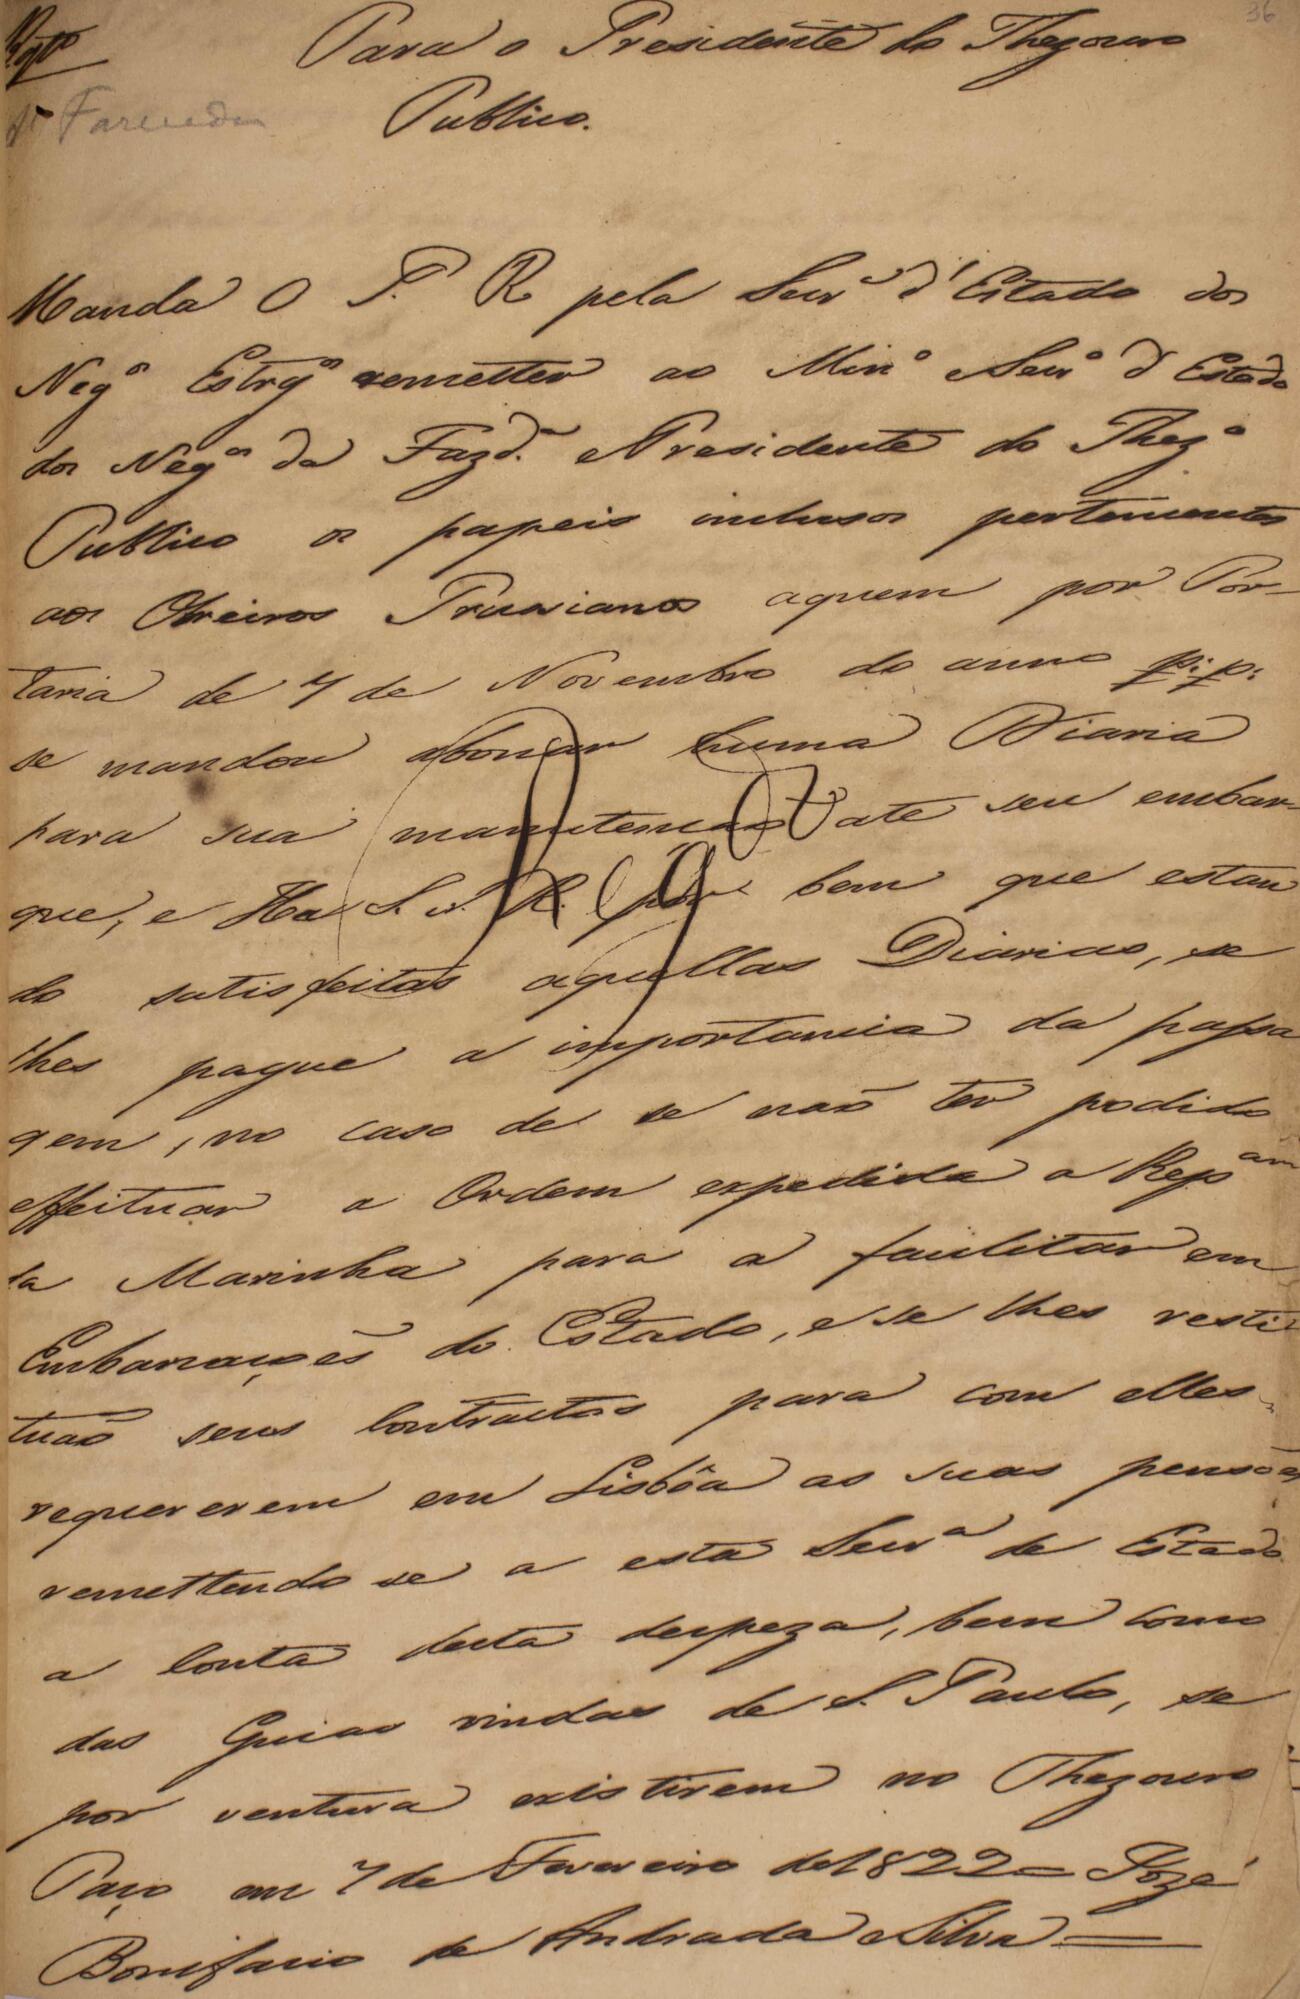 36
Rgdo
Para o Presidente do Thezouro
Fazenda
Publico.
Manda O P. R pela Secr.ª d'Estado dos
Neg.os Estrg.os remetter ao Min.º e Secr.º d'Estado
dos Neg.os da Fazd.ª e Presidente do Thez.º
Publico os papeis inclusos pertencentes
aos Obreiros Prussianos aquem por Por-
taria de 7 de Novembro do anno p: p:
se mandou abonar huma Diaria
para sua manutenção até seu embar-
que, e Ha S. A. R. por bem que estan
do satisfeitas aquellas Diarias, se
lhes pague a importancia da passa
gem, no caso de se não ter podido
effeituar a Ordem expedida a Rep.am
da Marinha para a facilitar em
Embarcações do Estado, e se lhes resti
tuão seus Contractos para com elles
requererem em Lisbôa as suas pensões
remettendo se a esta Secr.ª de Estado
a Conta desta despeza, bem como
das Guias vindas de S. Paulo, se
por ventura existirem no Thezouro
Paço em 7 de Fevereiro de 1822 = Jozé
Bonifacio de Andrada e Silva =